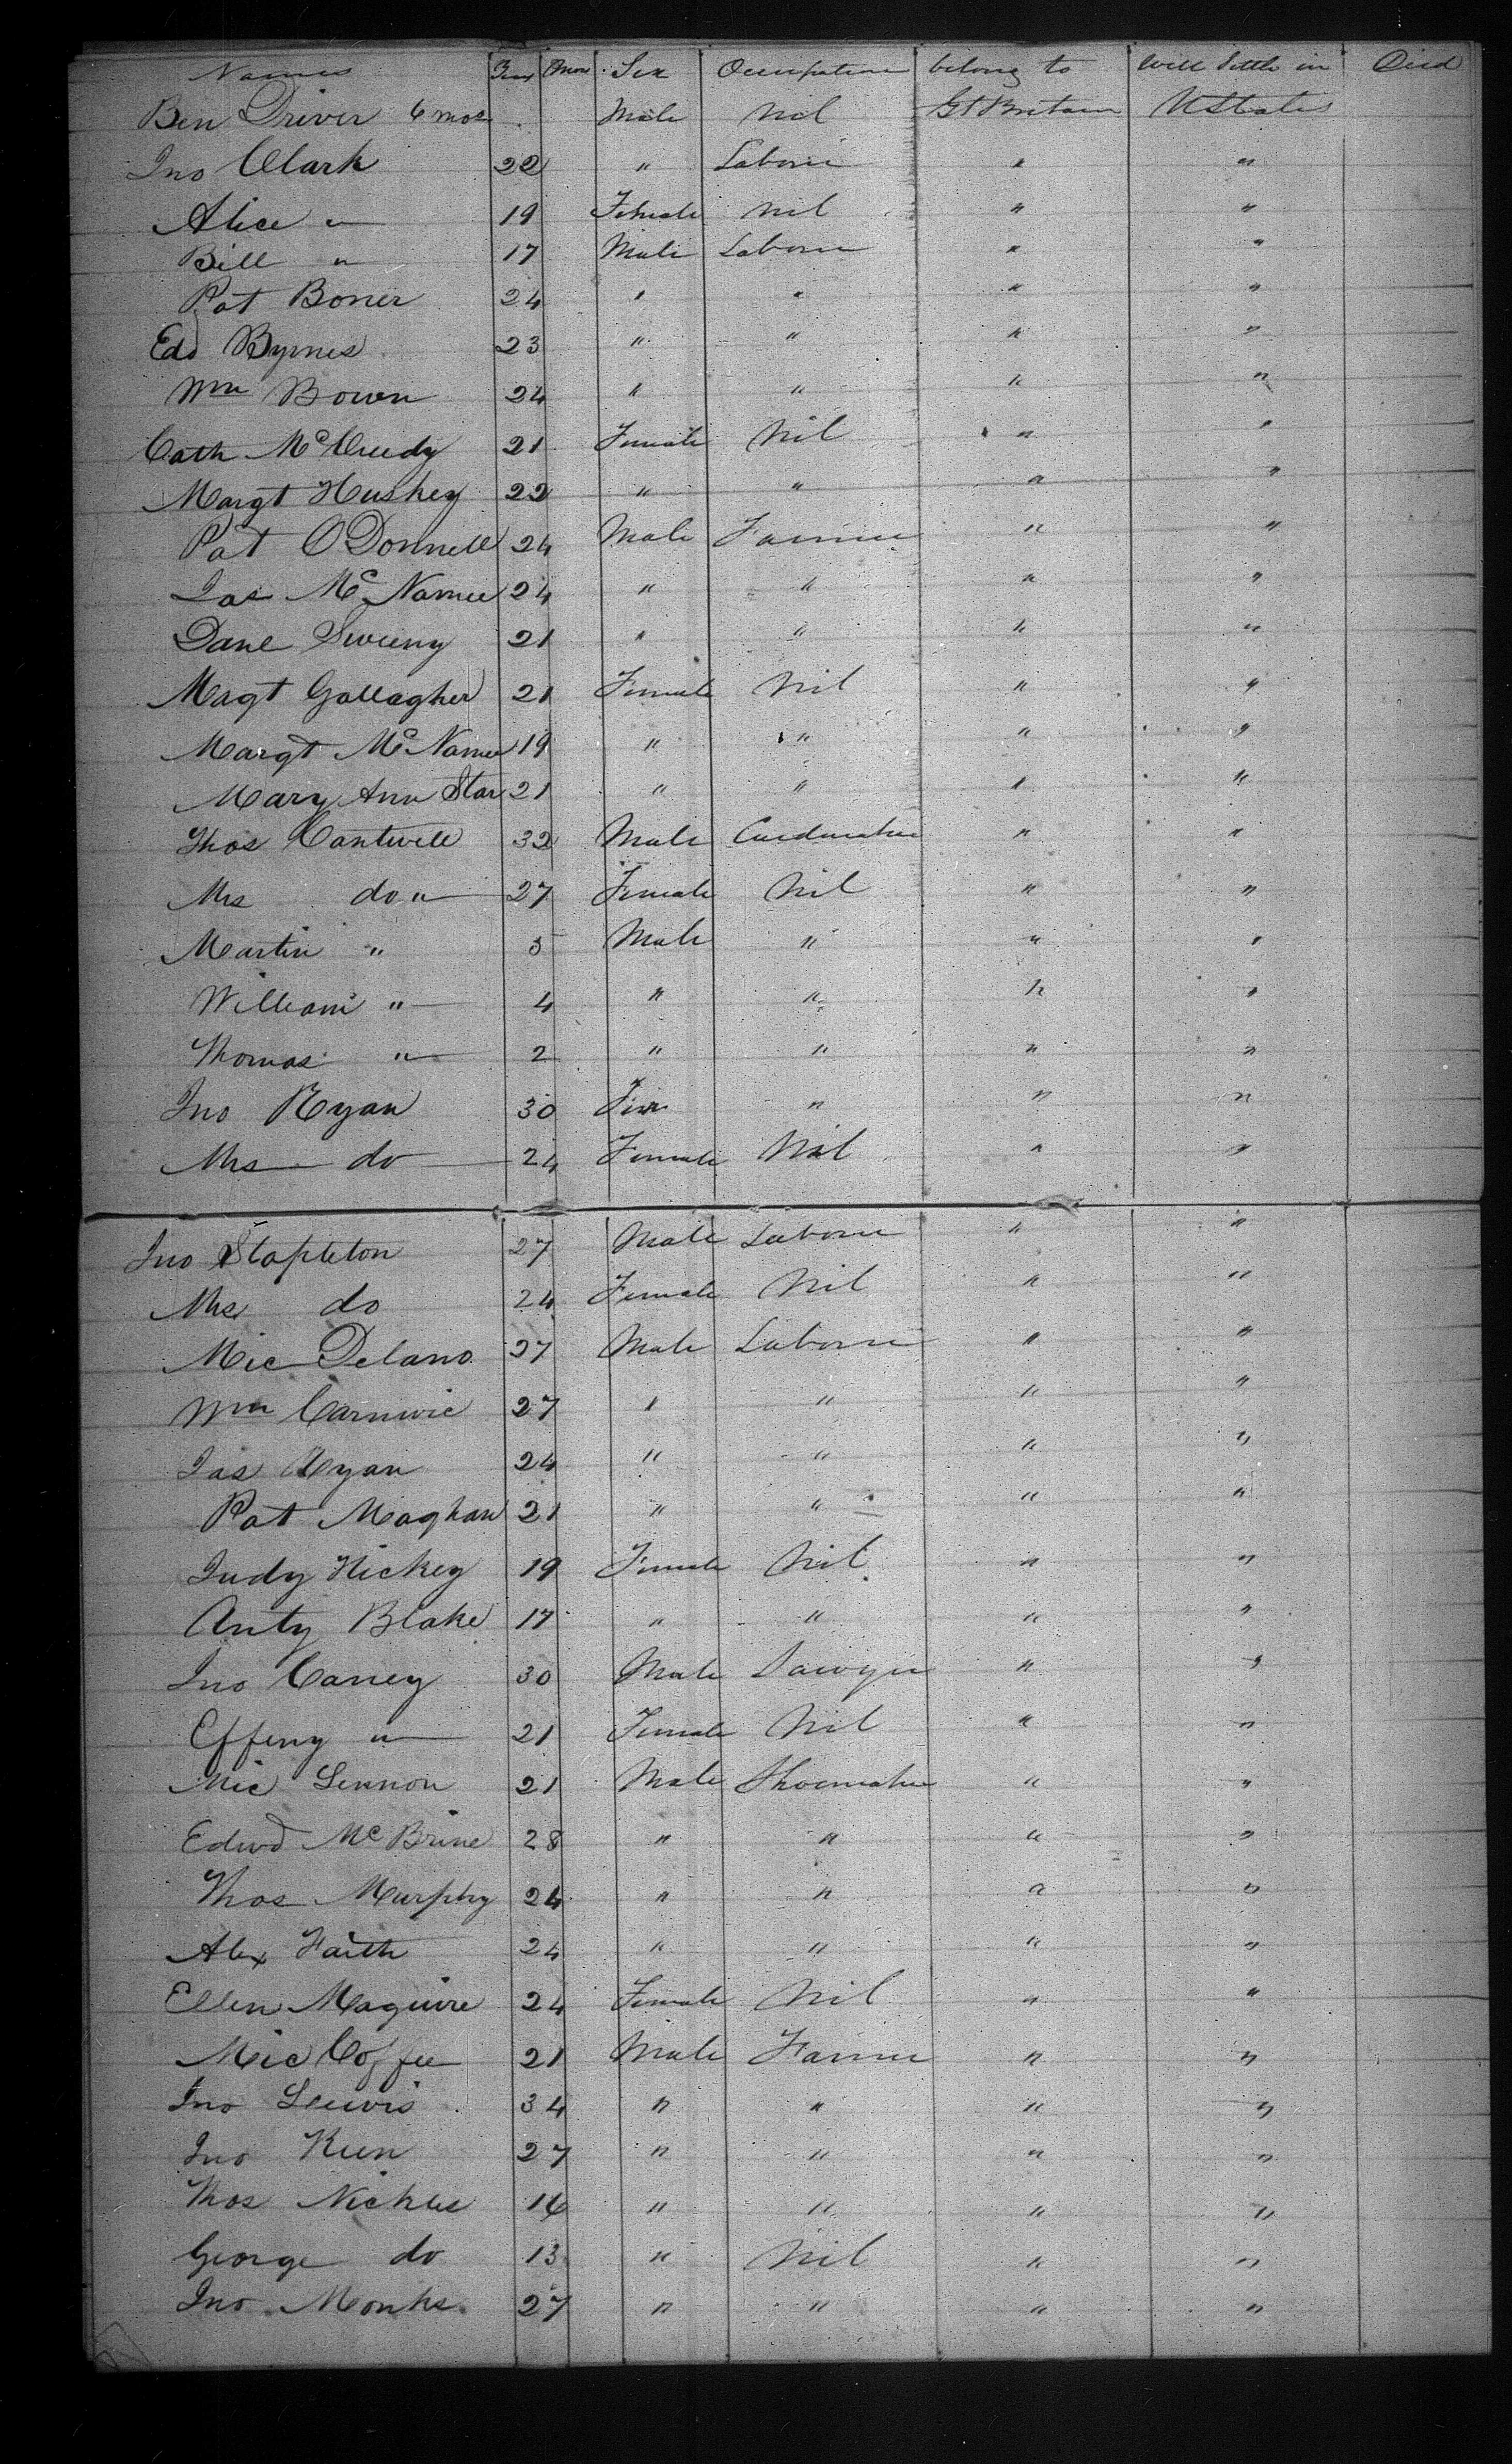 Names Years Mons Sex Occupation belong to Will Settle in Died
Ben Driver 6 mos Male Nil Gt Britain U States
Jno Clark 22 " Laborer " "
Alice " 19 Female Nil " "
Bill " 17 Male Laborer " "
Pat Boner 24 " " " "
Edd Byrnes 23 " " " "
Wm Bowen 24 " " " "
Cath McCreedy 21 Female Nil " "
Margt Huskey 22 " " " "
Pat O Donnell 24 Male Farmer " "
Jas McNamee 24 " " " "
Danl Sweeny 21 " " " "
Magt Gallagher 21 Female Nil " "
Margt McNamee 19 " " " "
Mary Ann Star 21 " " " "
Thos Cantwell 32 Male Cardmaker " "
Mrs do " 27 Female Nil " "
Martin " 5 Male " " "
William " 4 " " " "
Thomas " 2 " " " "
Jno Ryan 30 " " "
Mrs do 24 Female Nil " "
Jno Stapleton 27 Male Laborer " "
Mrs do 24 Female Nil " "
Mic Delano 27 Male Laborer " "
Wm 27 " " " "
Jas Ryan 24 " " " "
Pat Maghan 21 " " " "
Judy Hickey 19 Female Nil " "
Anty Blake 17 " " " "
Jno Carrey 30 Male Sawyer " "
Effeny " 21 Female Nil " "
Mic Lennon 21 Male Shoemaker " "
Edwd McBrine 28 " " " "
Thos Murphy 24 " " " "
Alex Faith 24 " " " "
Ellen Maguire 24 Female Nil " "
Mic Coffee 21 Male Farmer " "
Jno Lewis 34 " " " "
Jno Keen 27 " " " "
Thos Nickles 16 " " " "
George do 13 " Nil " "
Jno Monks 27 " " " "